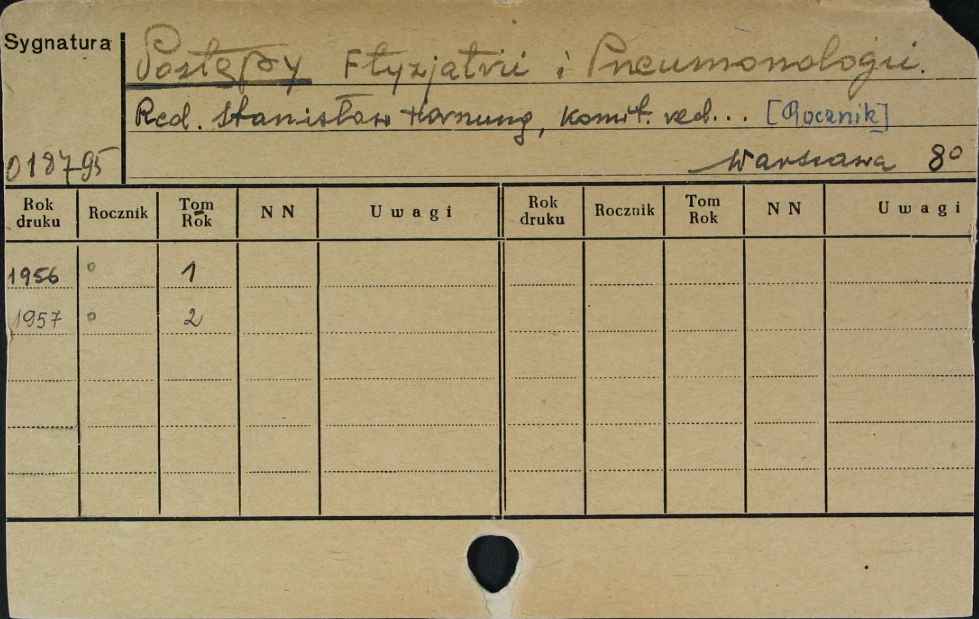 Sygnatura
Postępy Ftyzjatrii i Pneumonologii.
Red. Stanisław Hornung, Komit. red... [Rocznik]
018795
Warszawa 8°
Rok druku Rocznik Tom Rok NN Uwagi Rok druku Rocznik Tom Rok NN Uwagi
1956 ° 1
1957 ° 2